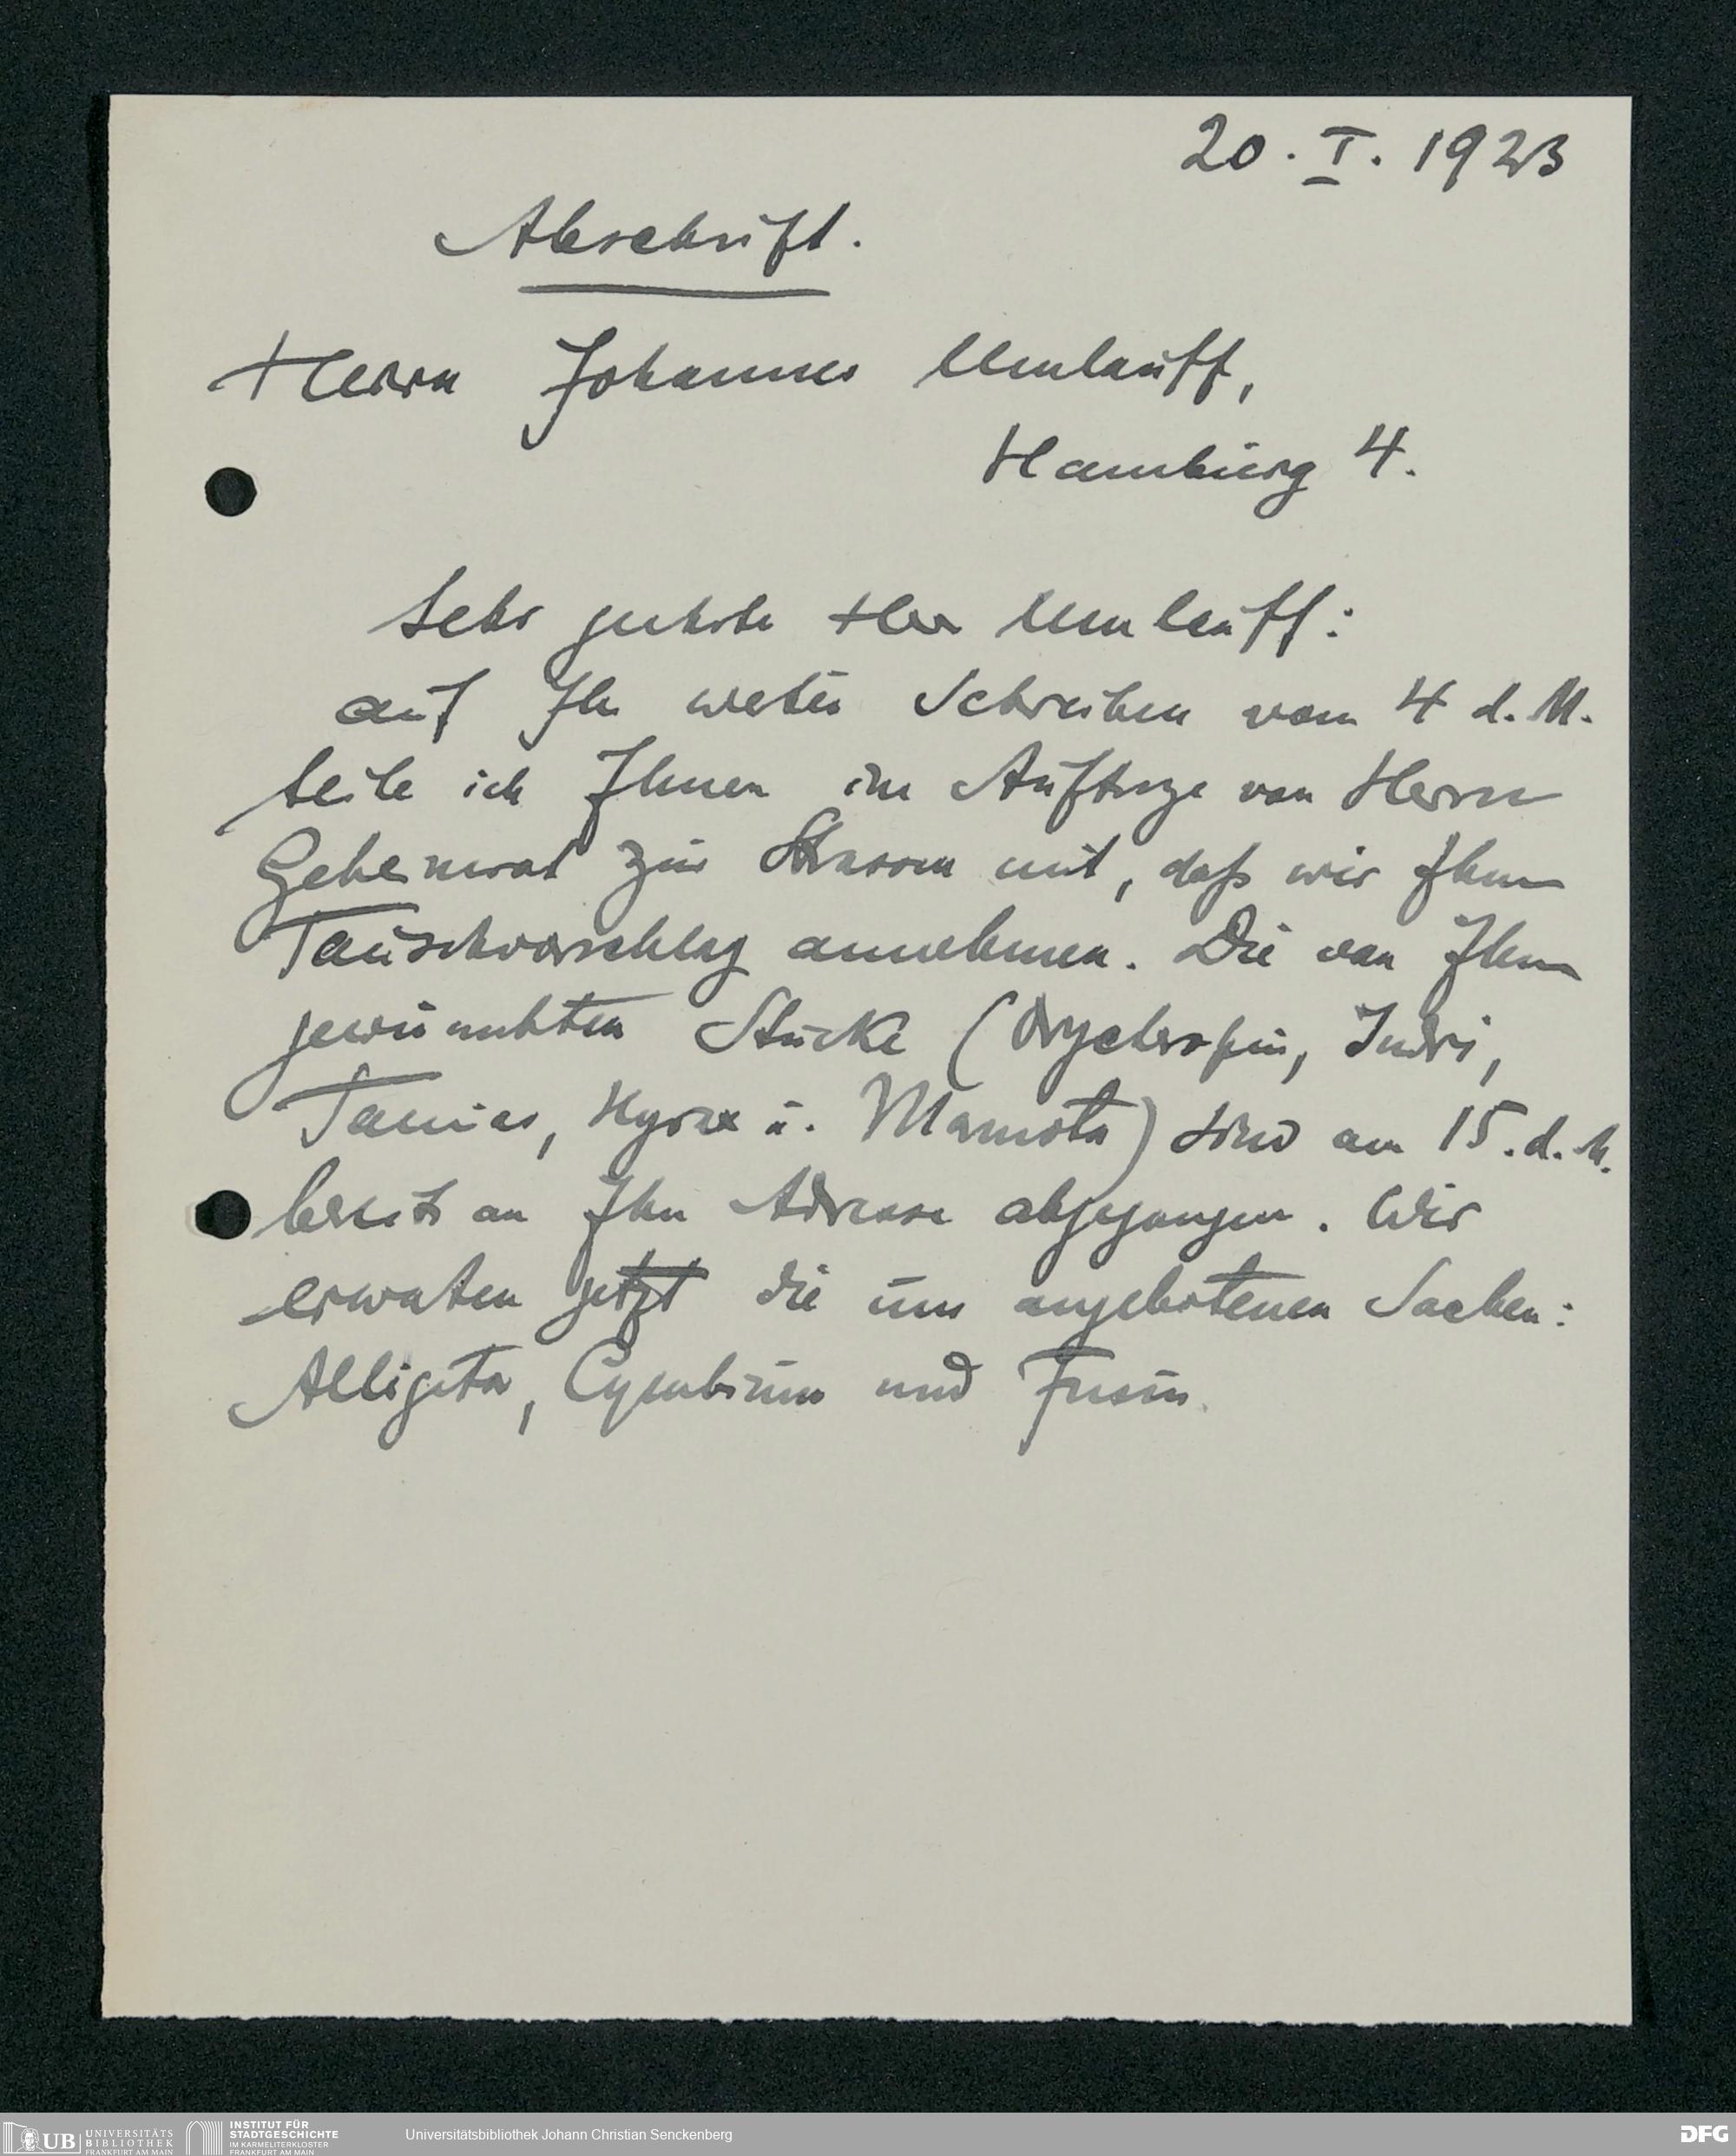 20. I. 1923
Abschrift.
Herrn Johannes Umlauff,
Hamburg 4.
Sehr geehrter Herr Umlauff:
auf Ihr wertes Schreiben vom 4 d. M.
teile ich Ihnen im Auftrage von Herrn
Geheimrat zur Strassen mit, daß wir Ihren
Tauschvorschlag annehmen. Die von Ihnen
gewünschten Stücke (Orycteropus, Indri,
Tamias, Hyrax u. Marmota) sind am 15. d. M.
bereits an Ihre Adresse abgegangen. Wir
erwarten jetzt die uns angebotenen Sachen:
Alligator, Cymbium und Fusus.
UB UNIVERSITÄTS
BIBLIOTHEK
FRANKFURT AM MAIN
INSTITUT FÜR
STADTGESCHICHTE
IM KARMELITERKLOSTER
FRANKFURT AM MAIN
Universitätsbibliothek Johann Christian Senckenberg
DFG